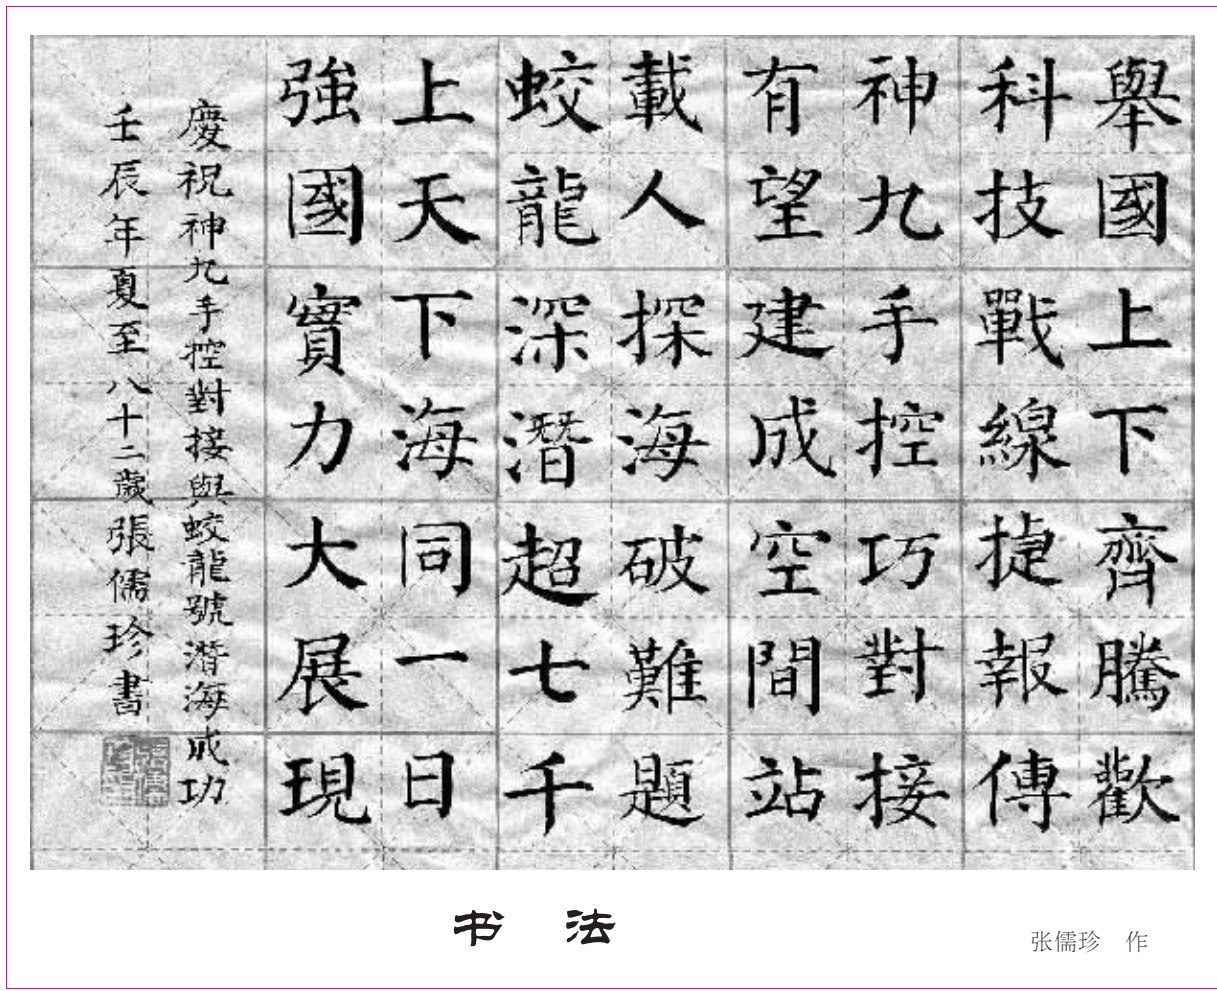 舉國上下齊騰歡
科技戰線捷報傳
神九手控巧對接
有望建成空間站
載人探海破難題
蛟龍深潛超七千
上天下海同一日
強國實力大展現
慶祝神九手控對接與蛟龍號潛海成功
壬辰年夏至八十二歲張儒珍書
书 法
张儒珍 作